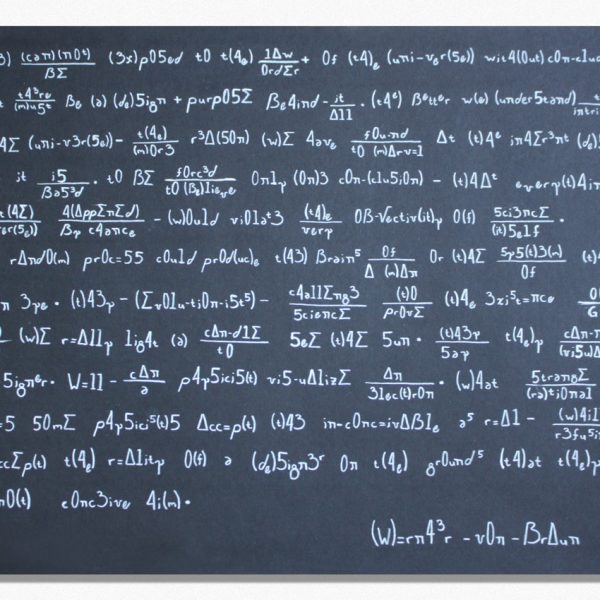 3) (can)(n0t)/BΣ (3x)p05ed t0 t(4e) 1Δw/0rdΣr + 0f (t4)e (uni-ver(5e)) wit4(0ut) c0n-clud
t43re/(m)u5t Be (a) (de)5ign + purp05Σ Be4ind - it/Δ11 · (t4e) Better w(e) (under5tand)
4Σ (uni-v3r(5e)) - t(4e)/(m)0r3 r3Δ(50n) (w)Σ 4ave f0u-nd/t0 (m)Δrv=1 Δt (t)4e in4Σr3nt (de)5
it i5/Ba53d · t0 BΣ f0rc3d/t0 (Be)lieve 0nly (0n)3 c0n-(clu5i0n) - (t)4Δt every(t)4in
t(4Σ)/ver(5e)) 4(ΔppΣnΣd)/By c4ance - (w)0uld vi0lat3 (t4)e/very 0B-vectiv(it)y 0(f) 5ci3ncΣ/(it)5elf ·
rΔnd0(m) pr0c=55 c0uld pr0d(uc)e t(43) Brain5 0f/Δ (m)Δn 0r (t)4Σ 5y5(t)3(m)/0f
n 3ye · (t)43y - (Σv0lu-ti0n-i5t5) - c4allΣng3/5ciencΣ (t)0/pr0vΣ (t)4e 3xi5t=nce
(w)Σ r=Δlly lig4t (a) cΔn-d1Σ/t0 5eΣ (t)4Σ 5un · (t)43y/5ay t(4e)y cΔn-n/(vi5u)Δ
5igner · W=11 - cΔn/a p4y5ici5(t) vi5-uΔlizΣ Δn/3lec(t)r0n · (w)4at 5tranΣ/(ra)ti0nal
=5 50mΣ p4y5ici5(t)5 Δcc=p(t) (t)43 in-c0nc=ivΔBle a5 r=Δl - (w)4il/r3fu5i
ccΣp(t) t(4e) r=Δlity 0(f) a (de)5ign3r 0n t(4e) gr0und5 (t4)at t(4e)y
n0(t) c0nc3ive 4i(m) ·
(W)=rn43r - v0n - BrΔun